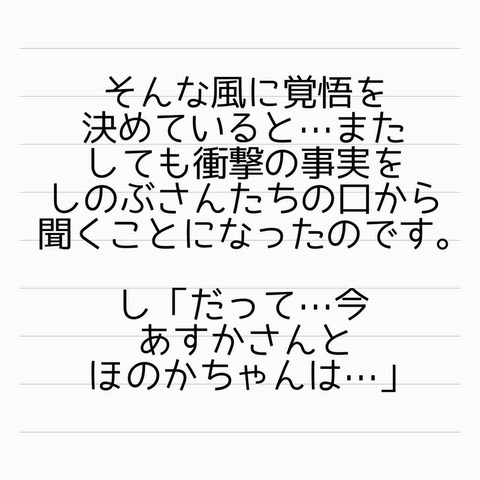 そんな風に覚悟を
決めていると…また
しても衝撃の事実を
しのぶさんたちの口から
聞くことになったのです。
し「だって…今
あすかさんと
ほのかちゃんは…」